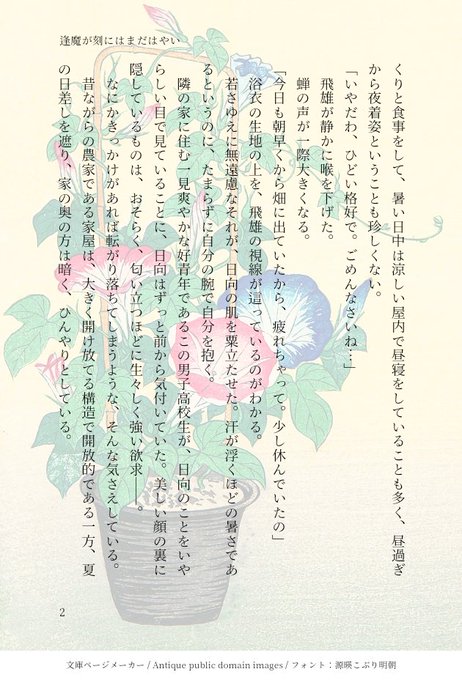 逢魔が刻にはまだはやい
くりと食事をして、暑い日中は涼しい屋内で昼寝をしていることも多く、昼過ぎ
から夜着姿ということも珍しくない。
「いやだわ、ひどい格好で。ごめんなさいね…」
飛雄が静かに喉を下げた。
蝉の声が一際大きくなる。
「今日も朝早くから畑に出ていたから、疲れちゃって。少し休んでいたの」
浴衣の生地の上を、飛雄の視線が這っているのがわかる。
若さゆえに無遠慮なそれが、日向の肌を粟立たせた。汗が浮くほどの暑さであ
るというのに、たまらずに自分の腕で自分を抱く。
隣の家に住む一見爽やかな好青年であるこの男子高校生が、日向のことをいや
らしい目で見ていることに、日向はずっと前から気付いていた。美しい顔の裏に
隠しているものは、おそらく、匂い立つほどに生々しく強い欲求――。
なにかきっかけがあれば転がり落ちてしまうような、そんな気さえしている。
昔ながらの農家である家屋は、大きく開け放てる構造で開放的である一方、夏
の日差しを遮り、家の奥の方は暗く、ひんやりとしている。
2
文庫ページメーカー / Antique public domain images / フォント：源暎こぶり明朝